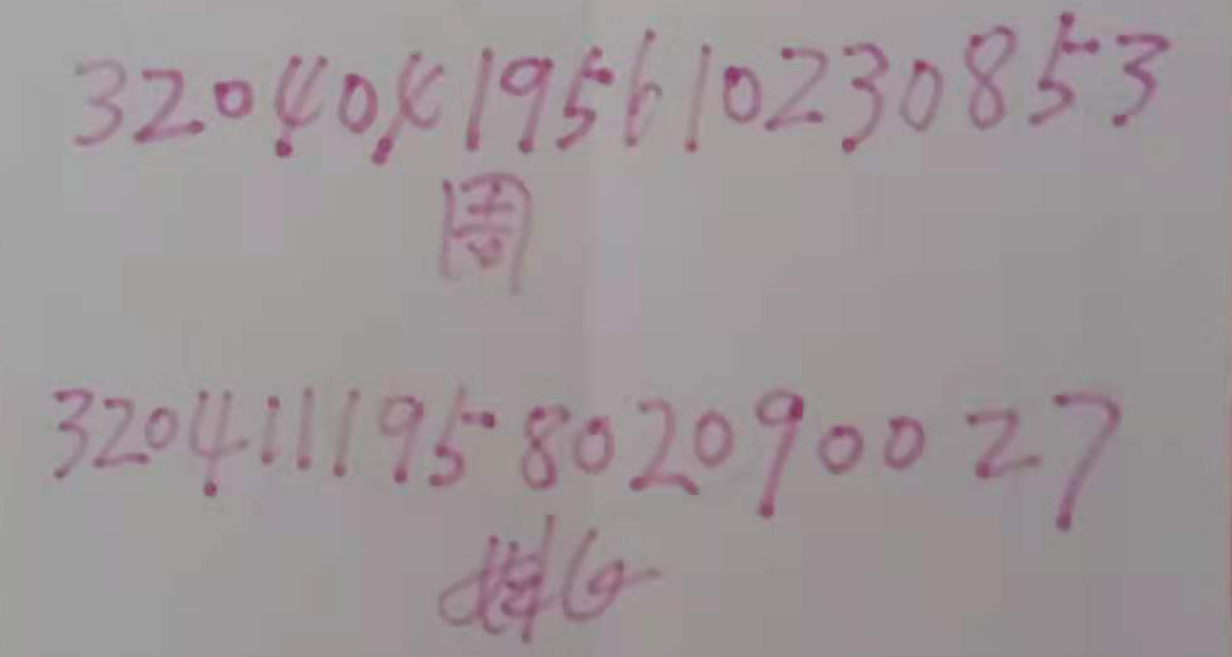 320404195610230853
周
320411195802090027